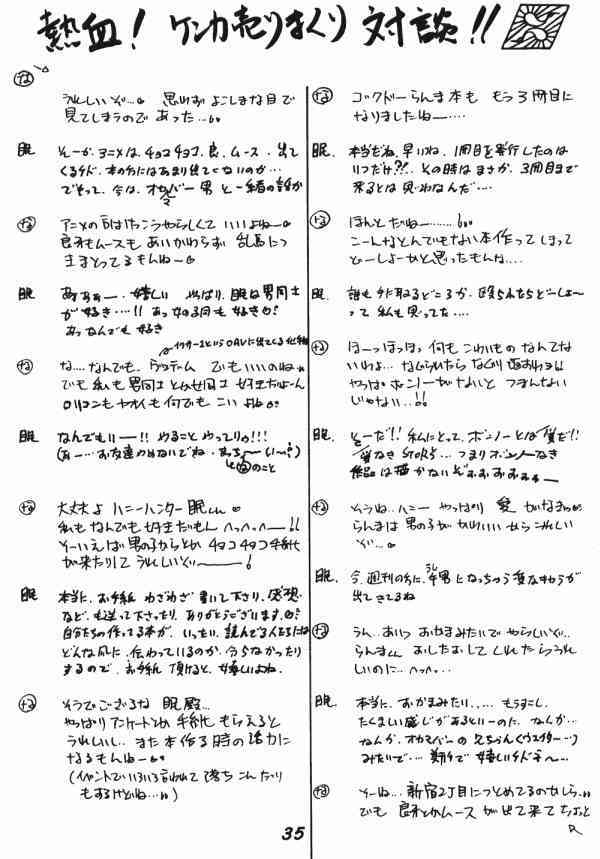 熱血! ケンカ売りまくり 対談!!
な ゴクドーらんま本も もう3冊目に
なりましたねー‥‥
眠 本当だね、早いね、1冊目を発行したのは
いつだけ?!. その時はまさか、3冊目まで
来るとは思わなんだ‥‥
な ほんとだね‥‥‥
こーんなとんでもない本作ってしまって
どーしよーかと思ったもんな‥‥
眠 誰も 引取るどころか、殴られたらどーしよ〜
って 私も思ってた‥‥
な ほーっほっほっ 何もこわいものなんてない
いわよ… なぐられたらなぐり
やっぱボンノーがないと つまんない
じゃない‥!!
眠 そーだ!! 私にとって、ボンノーとは愛だ!!
愛なきSTORY‥‥ つまりボンノーなき
作品は描かないぞぉぉぉぉぉー
な そうね‥ハニー やっぱり 愛 がなきゃね
らんまは 男の子がかわいいから うれしい
ぞ‥
眠 今、週刊の方に、男になっちゃう変なキャラが
出てきてるね
な うん‥あいつ おかまみたいで やらしいぞ‥
らんまくん おしたおして くれたらうれ
しいのに‥へっへっ‥
眠 本当に、おかまみたい‥‥. もう少し、
たくましい感じがあるといーのに、なんか‥
なんか、オカマバーの
みたいで‥ 嬉しいけど〜‥
な そーね‥. 新宿2丁目につとめてるのかしら‥
でも 良牙とかムース が出て来て ちょっと
な うれしいぞ… 思わずよこしまな目で
見てしまうので あった‥‥
眠 そーか、アニメは、チョコチョコ、良、ムース、出て
くるけど、本の方にはあまり出てこないのか…
でもって、今は、オカマバー男と一緒の話か
な アニメの方はけっこうやらしくて いいよねー
良牙もムースも あいかわらず 乱馬につ
きまとってるもんねー
眠 あぁぁー‥嬉しい やっぱり、眠は男同士
が好き‥‥!! あっ女の子同士も好きか!
あっ なんでも 好き
な な‥‥なんでも、 でもいいのね‥
でも 私も男同士とか女同士 好きだよーん
ロリコンも ヤオイも 何でもこい よね
眠 なんでもいーー!! やることやってりゃ!!!
な 大丈夫よ ハニーハンター 眠くん
私もなんでも好きだもん へっへっへー!!
そーいえば男の子からとか チョコチョコ手紙
が来たりして うれしいぞー———!
眠 本当に、お手紙 わざわざ 書いて下さり、感想
なども送って下さったり、ありがとうございます
自分たちの作ってる本が、いったい、読んでる人たちには
どんな風に、伝わっているのか、分らなかったり
するので、お手紙頂けると、嬉しいよね、
な そうでござるな 眠殿‥
やっぱりアンケートとか手紙 もらえると
うれしいし、また 本作る時の活力に
なるもんねー
(イベントでいろいろ言われて 落ちこんだり
もするけどね‥‥)
35